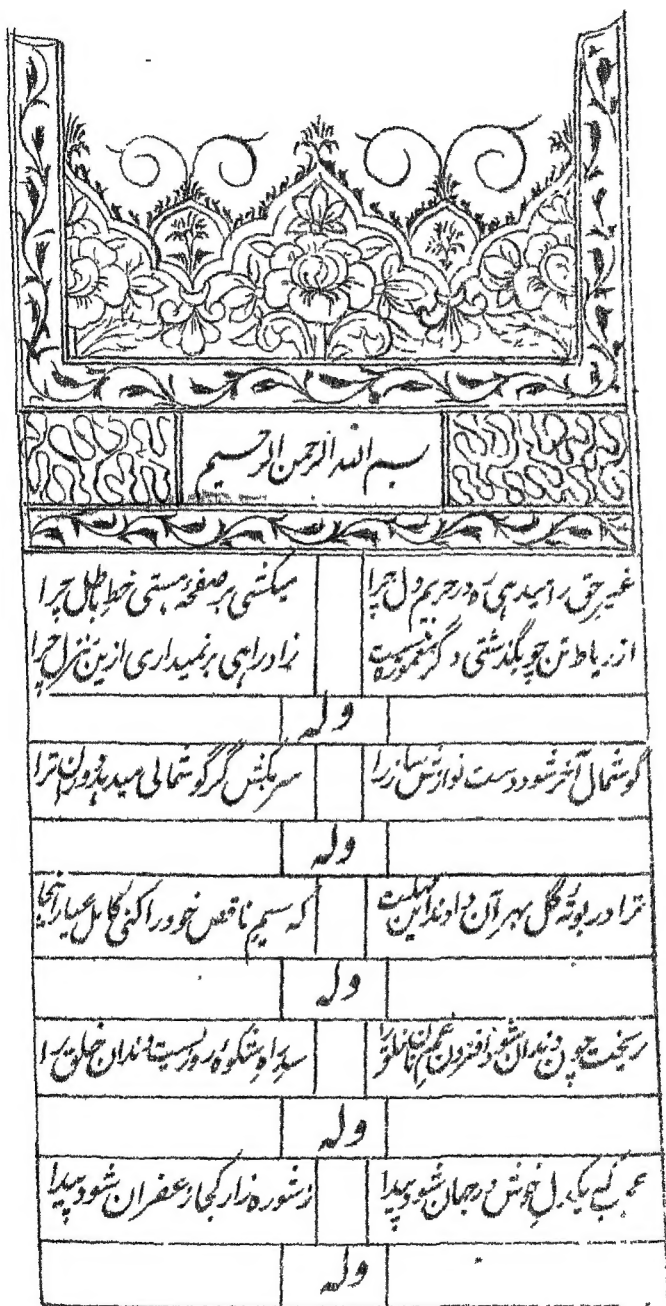 بسم الله الرحمن الرحیم
غیر حق را میدهی ره در حریم دل چرا میکشی بر صفحهٔ هستی خط باطل چرا
از رباط تن چو بگذشتی دگر معموره نیست زاد راهی برنمیداری ازین منزل چرا
وله
گوشمال آخر شود دست نوازش ساز را سر مکش گر گوشمالی میدهد دوران ترا
وله
ترا در بوتهٔ گل بهر آن دادند این مهلت که سیم ناقص خود را کنی کامل عیار اینجا
وله
ریخت چون دندان شود افزون غم نان خلق را سد راه شکوهٔ روزیست دندان خلق را
وله
عجب که یکدل خوش در جهان شود پیدا ز شوره زار کجا زعفران شود پیدا
وله